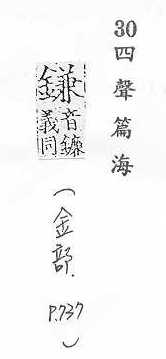 30四聲篇海
鎌
音鐮
義同
(金部. P.737)